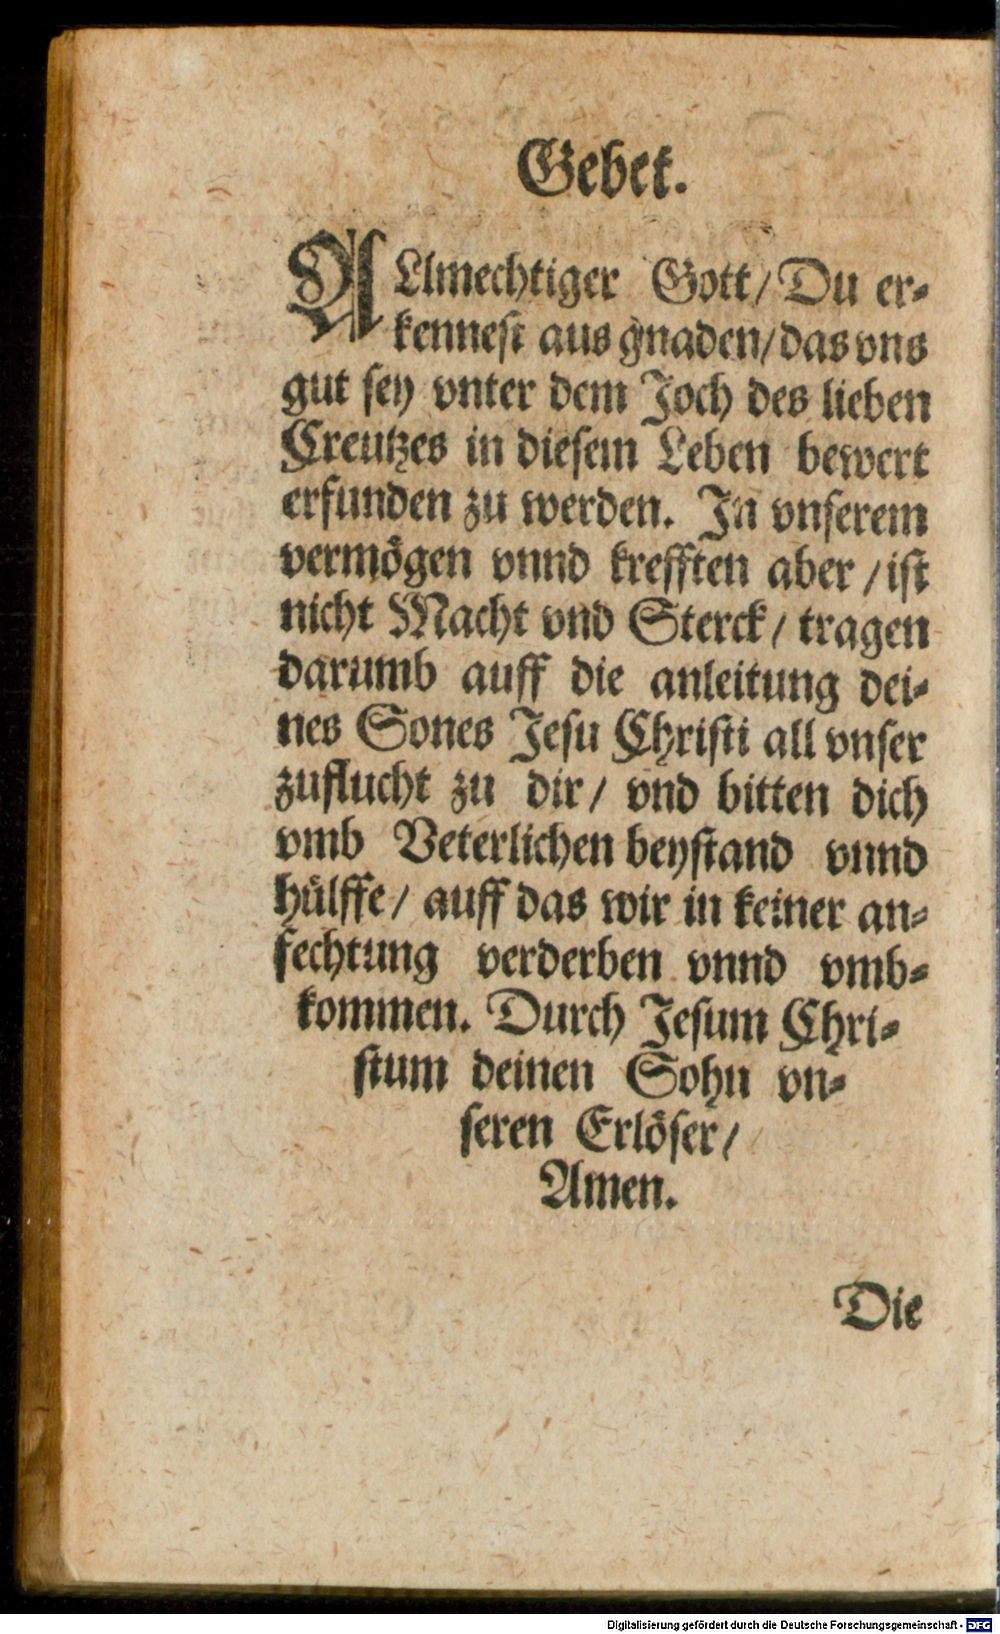 Gebet.
ALlmechtiger Gott/ Du er-
kennest aus gnaden/das vns
gut sey vnter dem Joch des lieben
Creutzes in diesem Leben bewert
erfunden zu werden. In vnserem
vermögen vnnd krefften aber /ist
nicht Macht vnd Sterck/ tragen
darumb auff die anleitung dei-
nes Sones Jesu Christi all vnser
zuflucht zu dir/ vnd bitten dich
vmb Veterlichen beystand vnnd
hülffe/ auff das wir in keiner an-
fechtung verderben vnnd vmb-
kommen. Durch Jesum Chri-
stum deinen Sohn vn-
seren Erlöser/
Amen.
Die
Digitalisierung gefördert durch die Deutsche Forschungsgemeinschaft - DFG